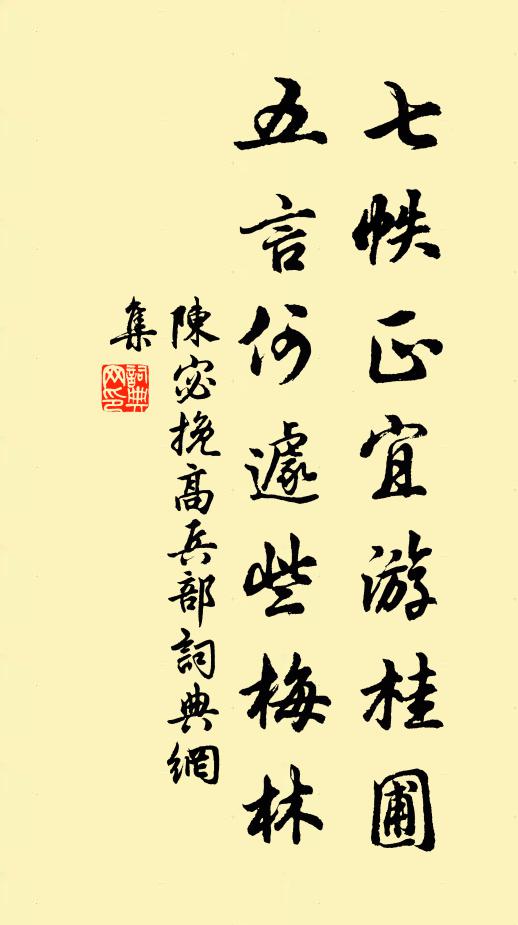 七帙正宜游桂圃
五言何遽些梅林
陳宓挽高兵部詞典網
集
詞典
网印